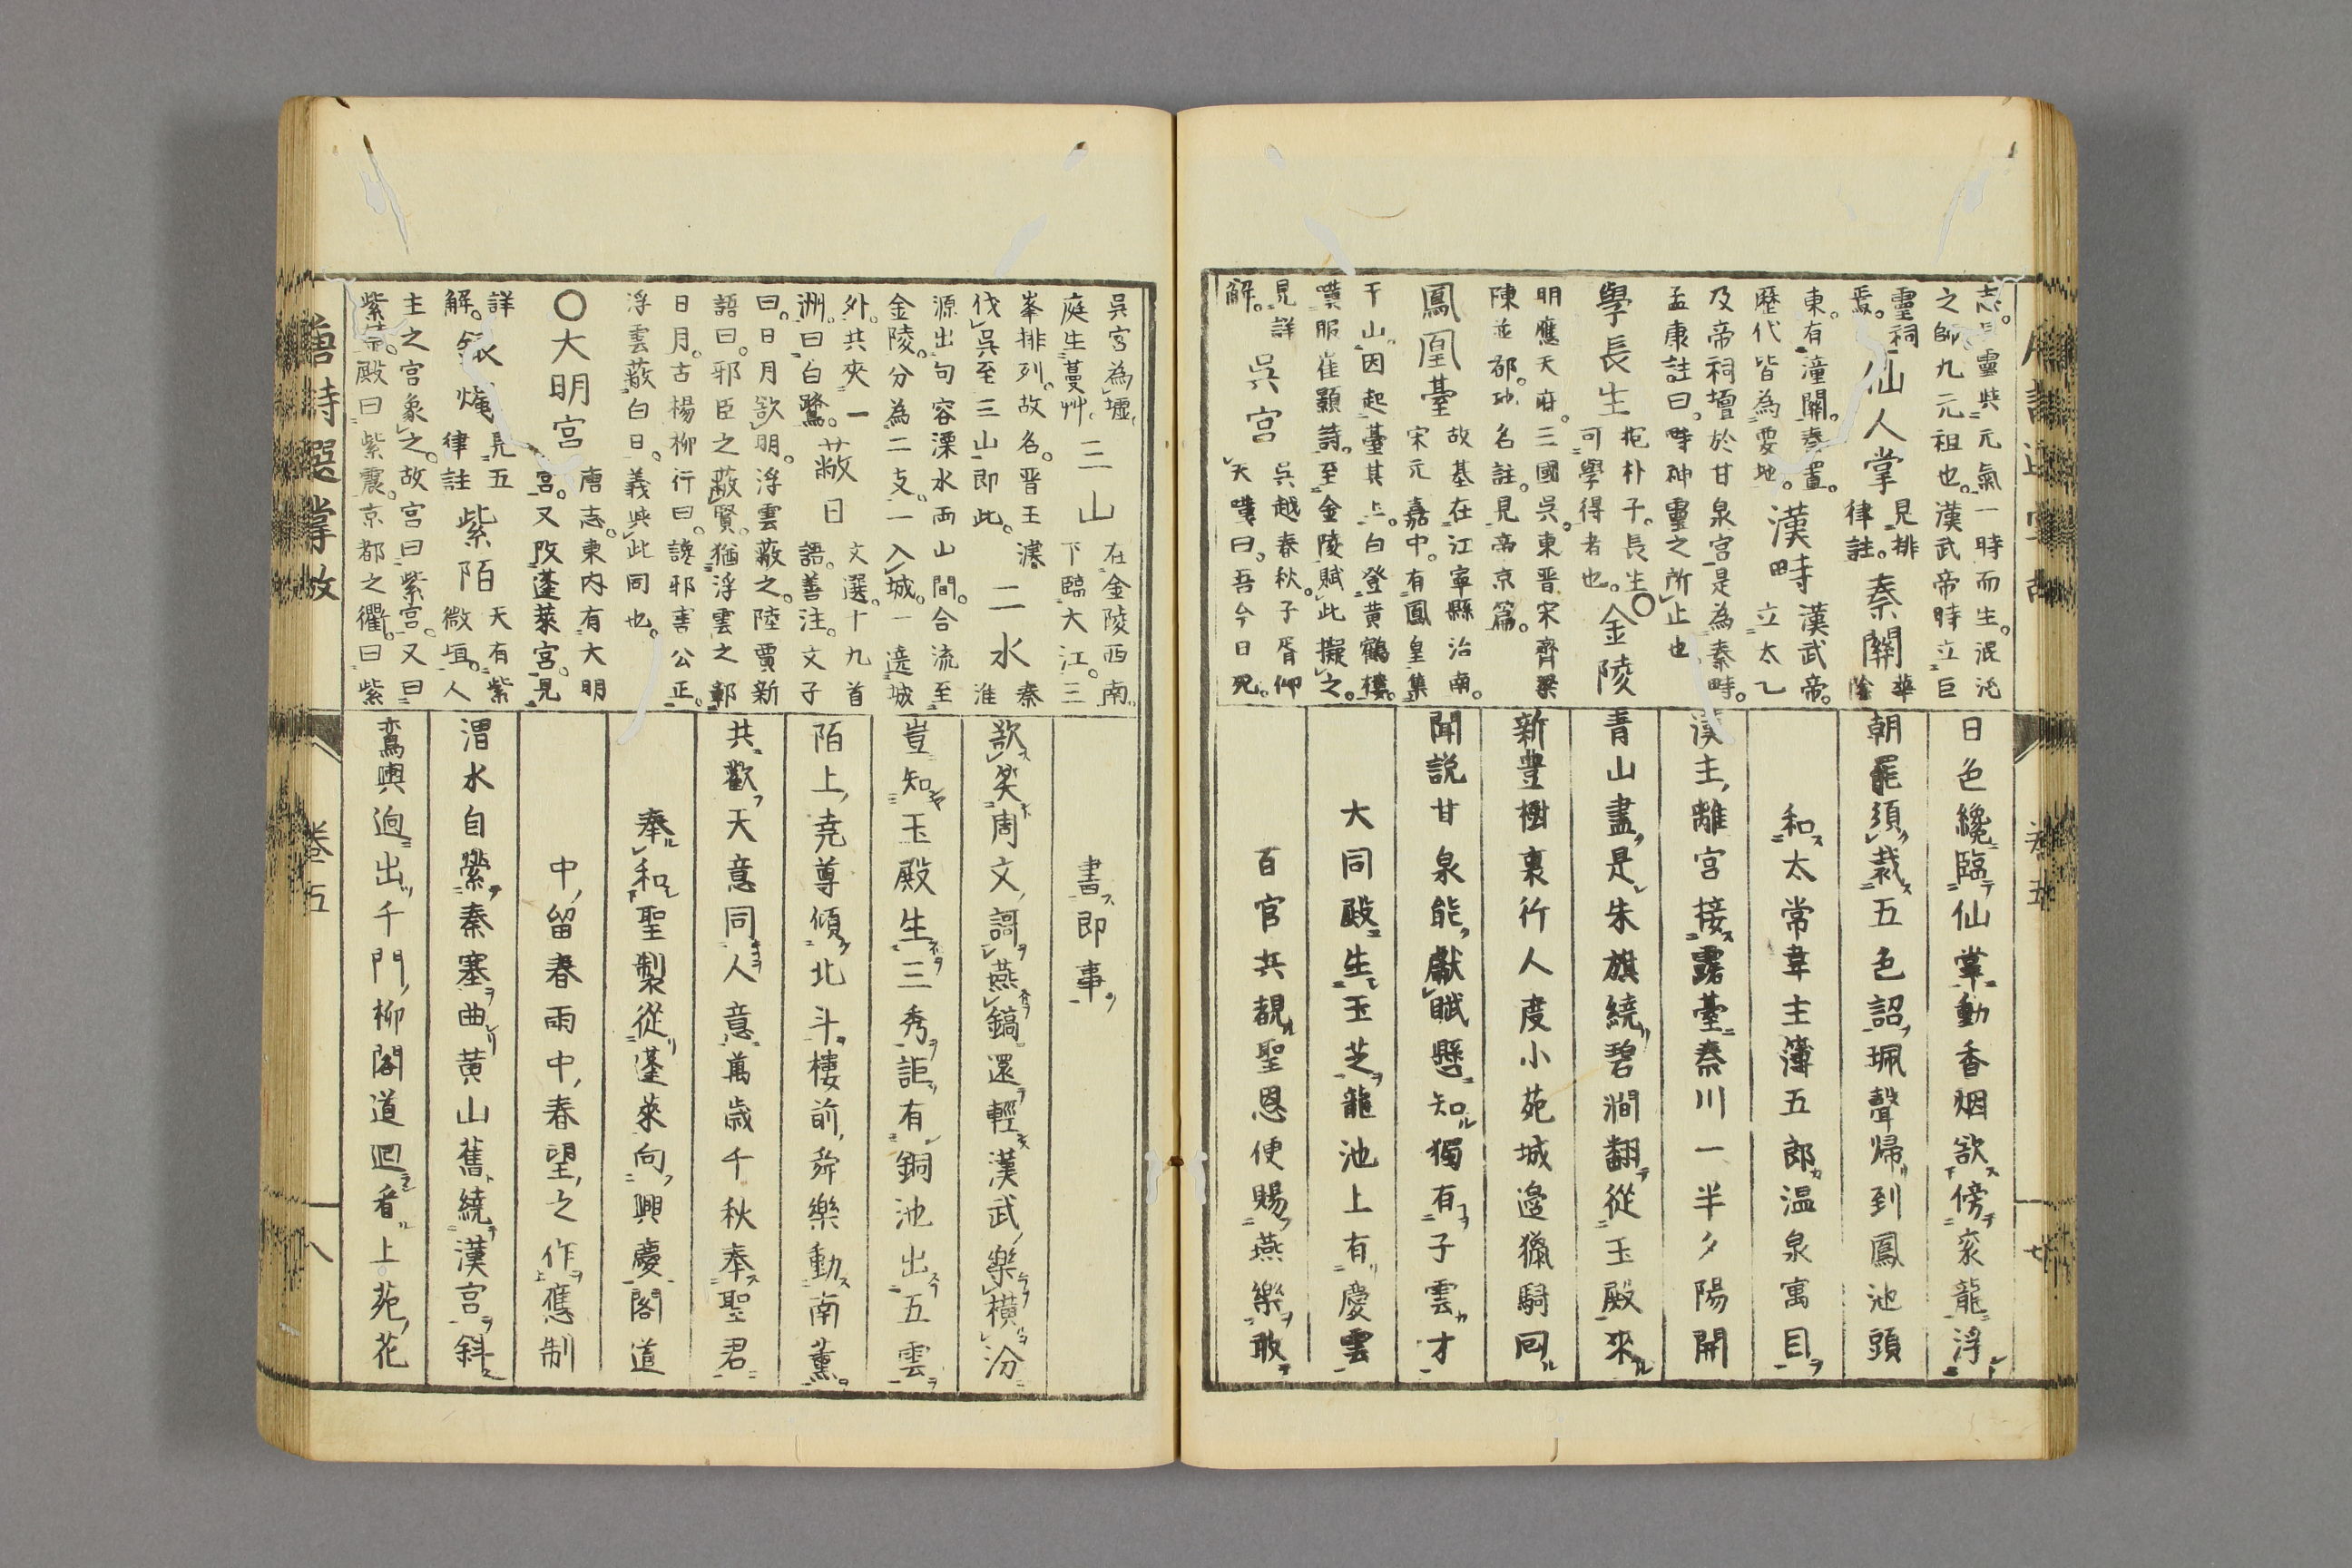 志。巨靈與元氣一時而生。混沌
之師九元祖也。漢武帝時立巨
靈祠焉。 仙人掌 見排律註。 秦關 華陰
東。有潼關。秦置。歷代皆為要地。 漢畤 漢武帝。立太乙
及帝祠壇於甘泉宮。是為秦畤。
孟康註曰。畤神靈之所止也
學長生 抱朴子。長生可學得者也。 ○金陵
明應天府。三國吳。東晋宋齊梁
陳並都。 名註。見帝京篇。
鳳凰臺 故基在江寧縣治南。宋元嘉中。有鳳皇集
于山。因起臺其上。白登黃鶴樓。
嘆服崔顥詩。至金陵賦此擬之。
見詳解。 吳宮 吳越春秋。子胥仰天嘆曰。吾今日死。
日色纔臨仙掌動香烟欲傍衮龍浮
朝罷須裁五色詔珮聲歸到鳳池頭
和太常韋主簿五郎温泉寓目
漢主離宮接露臺秦川一半夕陽開
青山盡是朱旗繞碧澗翻從玉殿來
新豊樹裏行人度小苑城邉獵騎回
聞説甘泉能獻賦懸知獨有子雲才
大同殿生玉芝龍池上有慶雲
百官共覩聖恩便賜燕樂敢
吳宮為墟。庭生蔓艸。 三山 在金陵西南。下臨大江。三
峯排列。故名。晋王濬伐吳至三山即此。 二水 秦淮
源出句容溧水両山間。合流至
金陵。分為二支。一入城。一遶城
外。共夾一洲。曰白鷺。 蔽日 文選。十九首語。善注。文子
曰。日月欲明。浮雲蔽之。陸賈新
語曰。邪臣之蔽賢。猶浮雲之鄣
日月。古楊柳行曰。讒邪害公正。
浮雲蔽白日。義與此同也。
○大明宮 唐志。東内有大明宮。又改蓬萊宮。見
詳解。 銀燭 見五律註 紫陌 天有紫微垣。人
主之宮象之。故宮曰紫宮。又曰
紫禁。殿曰紫宸。京都之衢。曰紫
書即事
欲笑周文謌燕鎬還輕漢武樂横汾
豈知玉殿生三秀詎有銅池出五雲
陌上堯尊傾北斗樓前舜樂動南薫
共歡天意同人意萬歳千秋奉聖君
奉和聖製從蓬萊向興慶閣道
中留春雨中春望之作應制
渭水自縈秦塞曲黄山舊繞漢宮斜
鸞輿逈出千門柳閣道廻看上苑花
唐詩選掌故
巻五
八